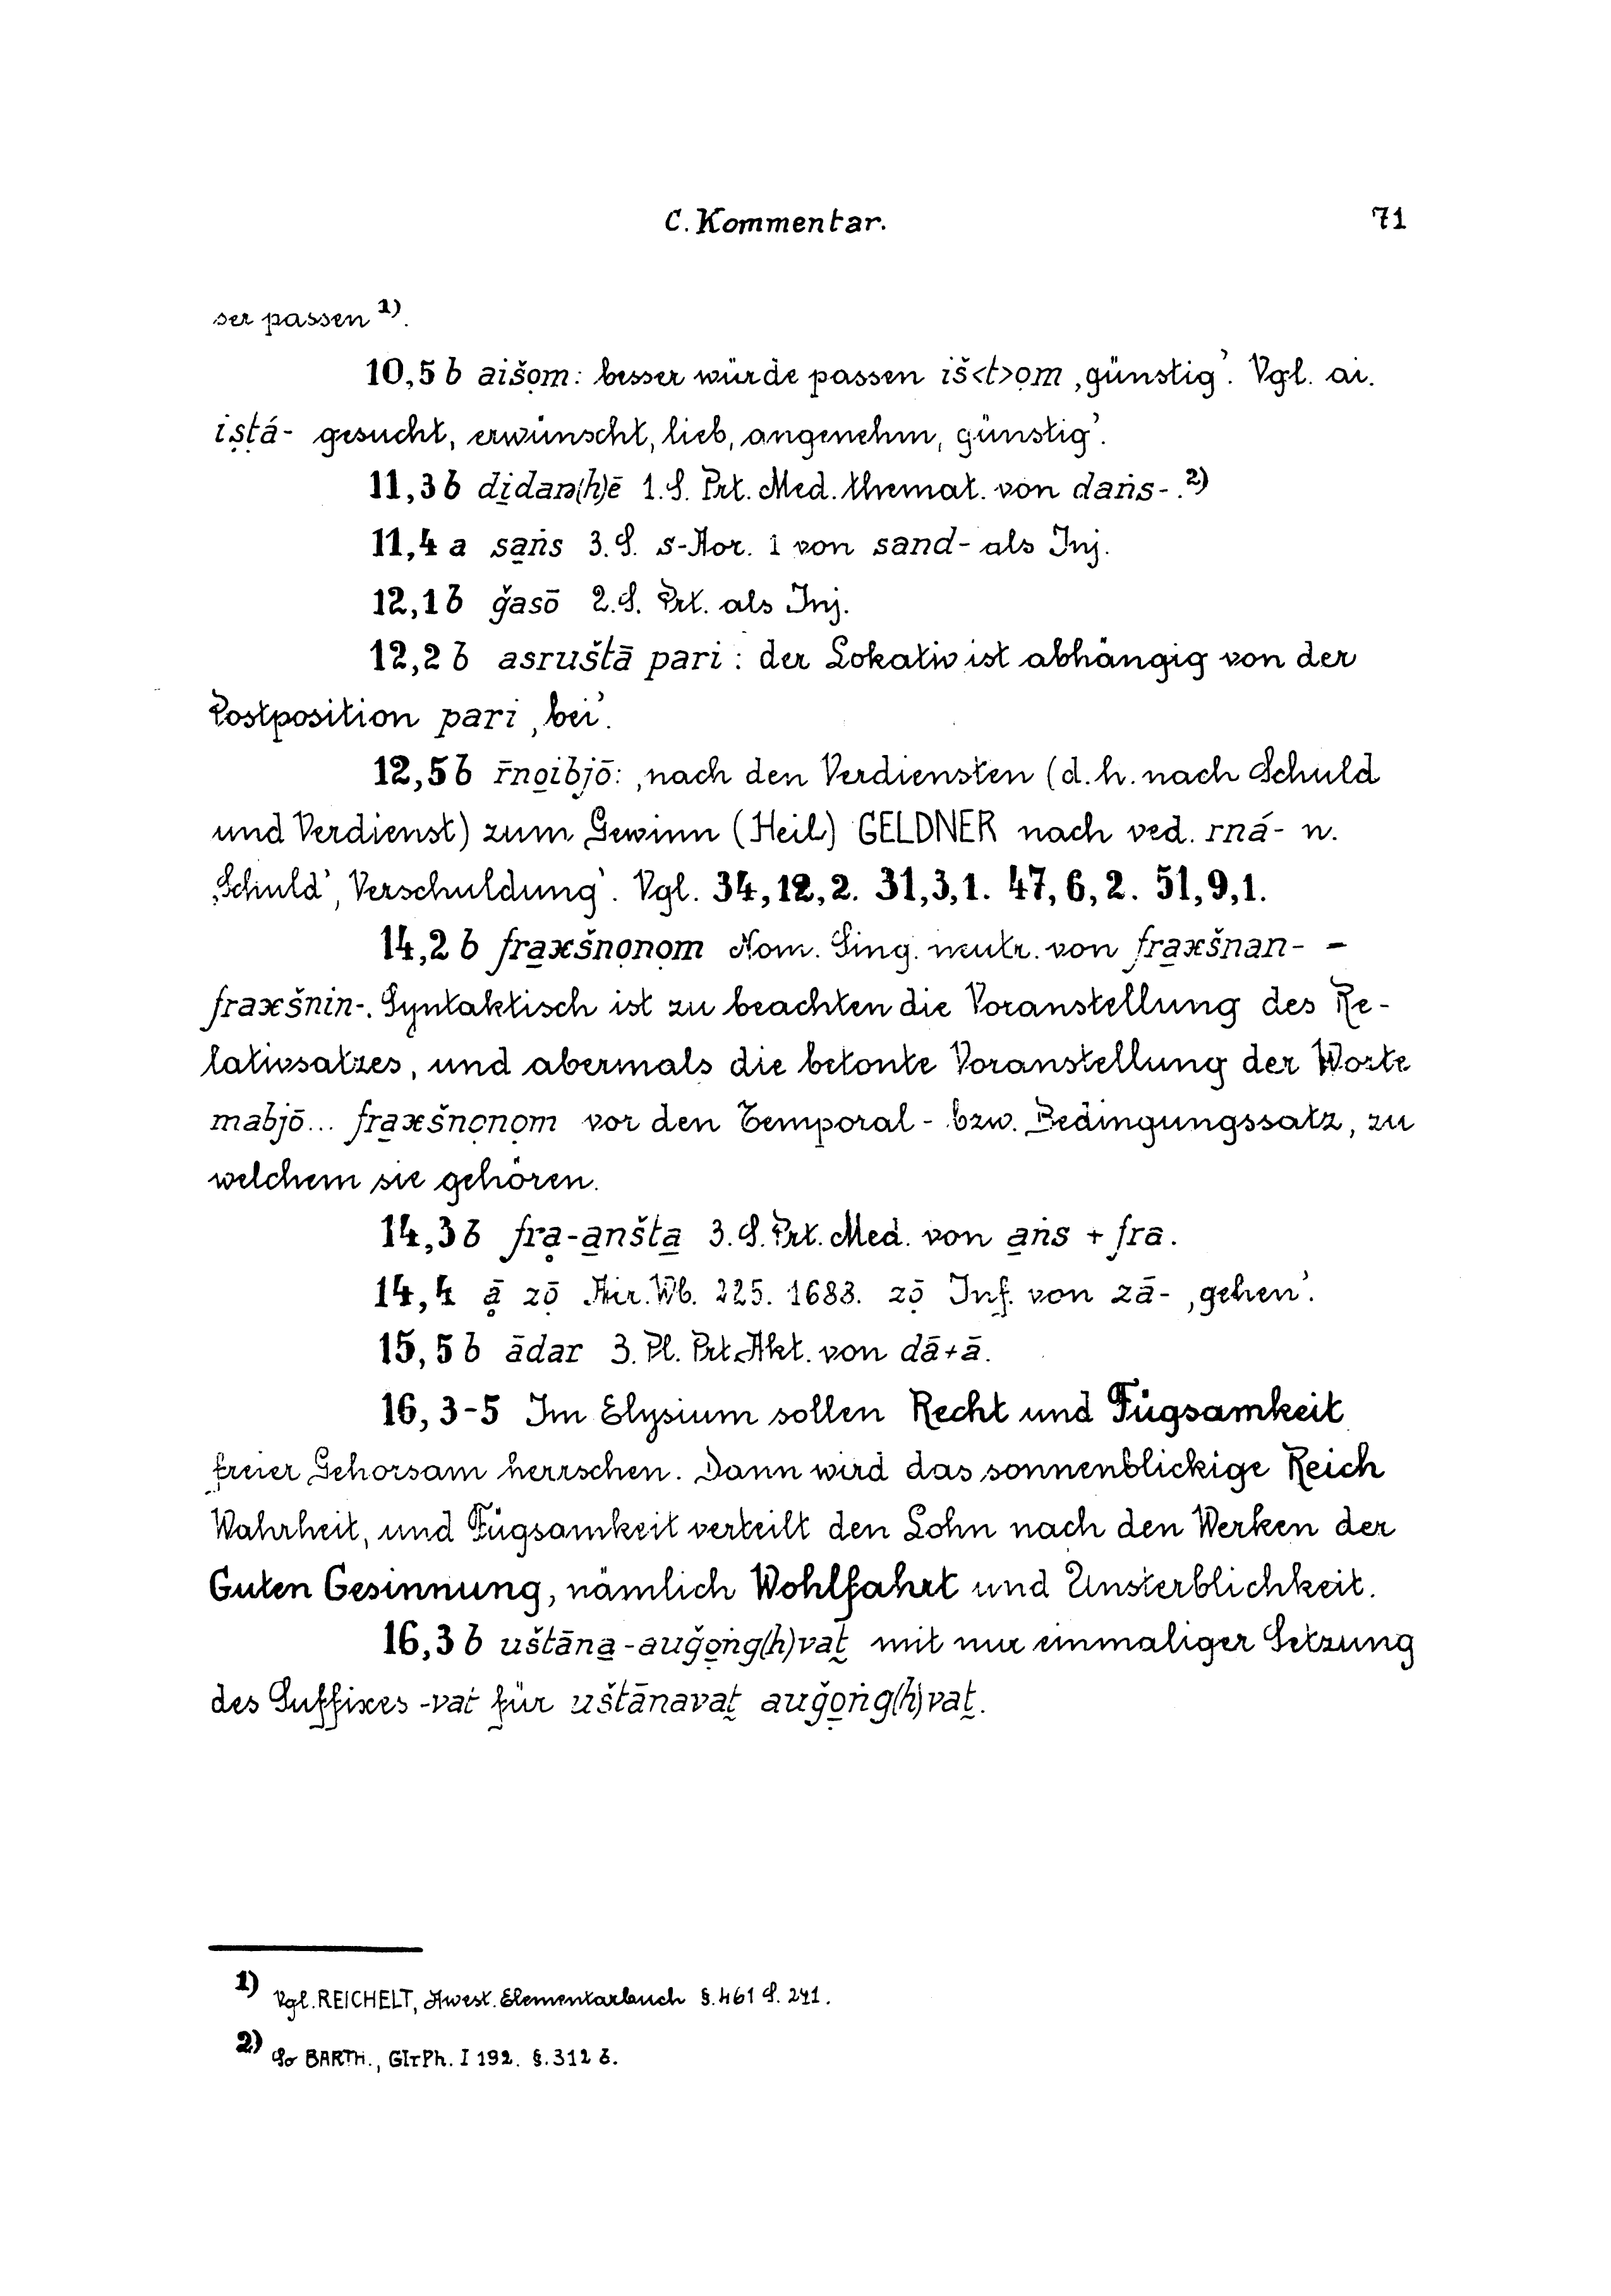 C. Kommentar. 71
ser passen ¹).
10,5 b aišọm: besser würde passen iš<t>ọm ‚günstig’. Vgl. ai.
iṣṭá- gesucht, erwünscht, lieb, angenehm, günstig’.
11,3 b di̱daṇ(h)ē 1. S. Prt. Med. themat. von daṅs-.²)
11,4 a sa̱ṅs 3. S. s-Aor. 1 von sand- als Inj.
12,1 b ǧasō 2. S. Prt. als Inj.
12,2 b asruštā pari : der Lokativ ist abhängig von der
Postposition pari ‚bei’.
12,5 b r̄no̱ibjō: ‚nach den Verdiensten (d. h. nach Schuld
und Verdienst) zum Gewinn (Heil) GELDNER nach ved. rná- n.
‚Schuld’, Verschuldung’. Vgl. 34,12,2. 31,3,1. 47,6,2. 51,9,1.
14,2 b fra̱xšnọnọm Nom. Sing. neutr. von fra̱xšnan- –
fraxšnin-. Syntaktisch ist zu beachten die Voranstellung des Re-
lativsatzes, und abermals die betonte Voranstellung der Worte
mabjō... fra̱xšnọnọm vor den Temporal- bzw. Bedingungssatz, zu
welchem sie gehören.
14,3 b frḁ-a̱nšta̱ 3. S. Prt. Med. von a̱ṅs + fra.
14,4 ḁ̄ zō̥ Air. Wb. 225. 1683. zō̥ Inf. von zā- ‚gehen’.
15,5 b ādar 3. Pl. Prt. Akt. von dā+ā.
16,3-5 Im Elysium sollen Recht und Fügsamkeit
freier Gehorsam herrschen. Dann wird das sonnenblickige Reich
Wahrheit, und Fügsamkeit verteilt den Lohn nach den Werken der
Guten Gesinnung, nämlich Wohlfahrt und Unsterblichkeit.
16,3 b uštāna̱-auǧọṅg(h)vat̰ mit nur einmaliger Setzung
des Suffixes -vat̰ für uštānavat̰ auǧọṅg(h)vat̰.
1) Vgl. REICHELT, Awest. Elementarbuch §. 461 S. 241.
2) So BARTH., GIrPh. I 192. §. 312 b.